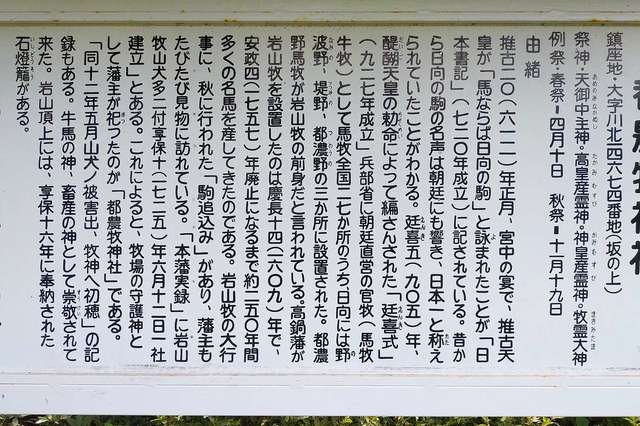 鎮座地・大字川北四六七四番地(坂の上)
祭神・天御中主神・高皇産霊神・神皇産霊神・牧霊大神
例祭・春祭・四月十日　秋祭・十一月十九日
由緒
推古二〇(六一二)年正月、宮中の宴で、推古天
皇が「馬ならば日向の駒」と詠まれたことが「日
本書記」(七二〇年成立)に記されている。昔か
ら日向の駒の名声は朝廷にも響き、日本一と称え
られていたことがわかる。延喜五(九〇五)年、
醍醐天皇の勅命によって編さんされた「廷喜式」
(九二七年成立)兵部省に朝廷直営の官牧(馬牧
牛牧)として馬牧全国二七か所のうち、日向には野
波野、堤野、都濃野の三か所に設置された。都濃
野馬牧が岩山牧の前身だと言われている。高鍋藩が
岩山牧を設置したのは慶長十四(六〇九)年で、
安政四(七五七)年廃止になるまで約二五〇年間
多くの名馬を産してきたのである。岩山牧の大行
事に、秋に行われた「駒追込み」があり、藩主も
たびたび見物に訪れている。「本藩実録」に岩山
牧山犬多二付享保十(七二五)年六月十二日一社
建立」とある。これによると、牧場の守護神と
して藩主が祀ったのが「都農牧神社」である。
「同十二年五月山犬ノ被害出、牧神へ初穂」の記
録もある。牛馬の神、畜産の神として崇敬されて
来た。岩山頂上には、享保十六年に奉納された
石燈籠がある。